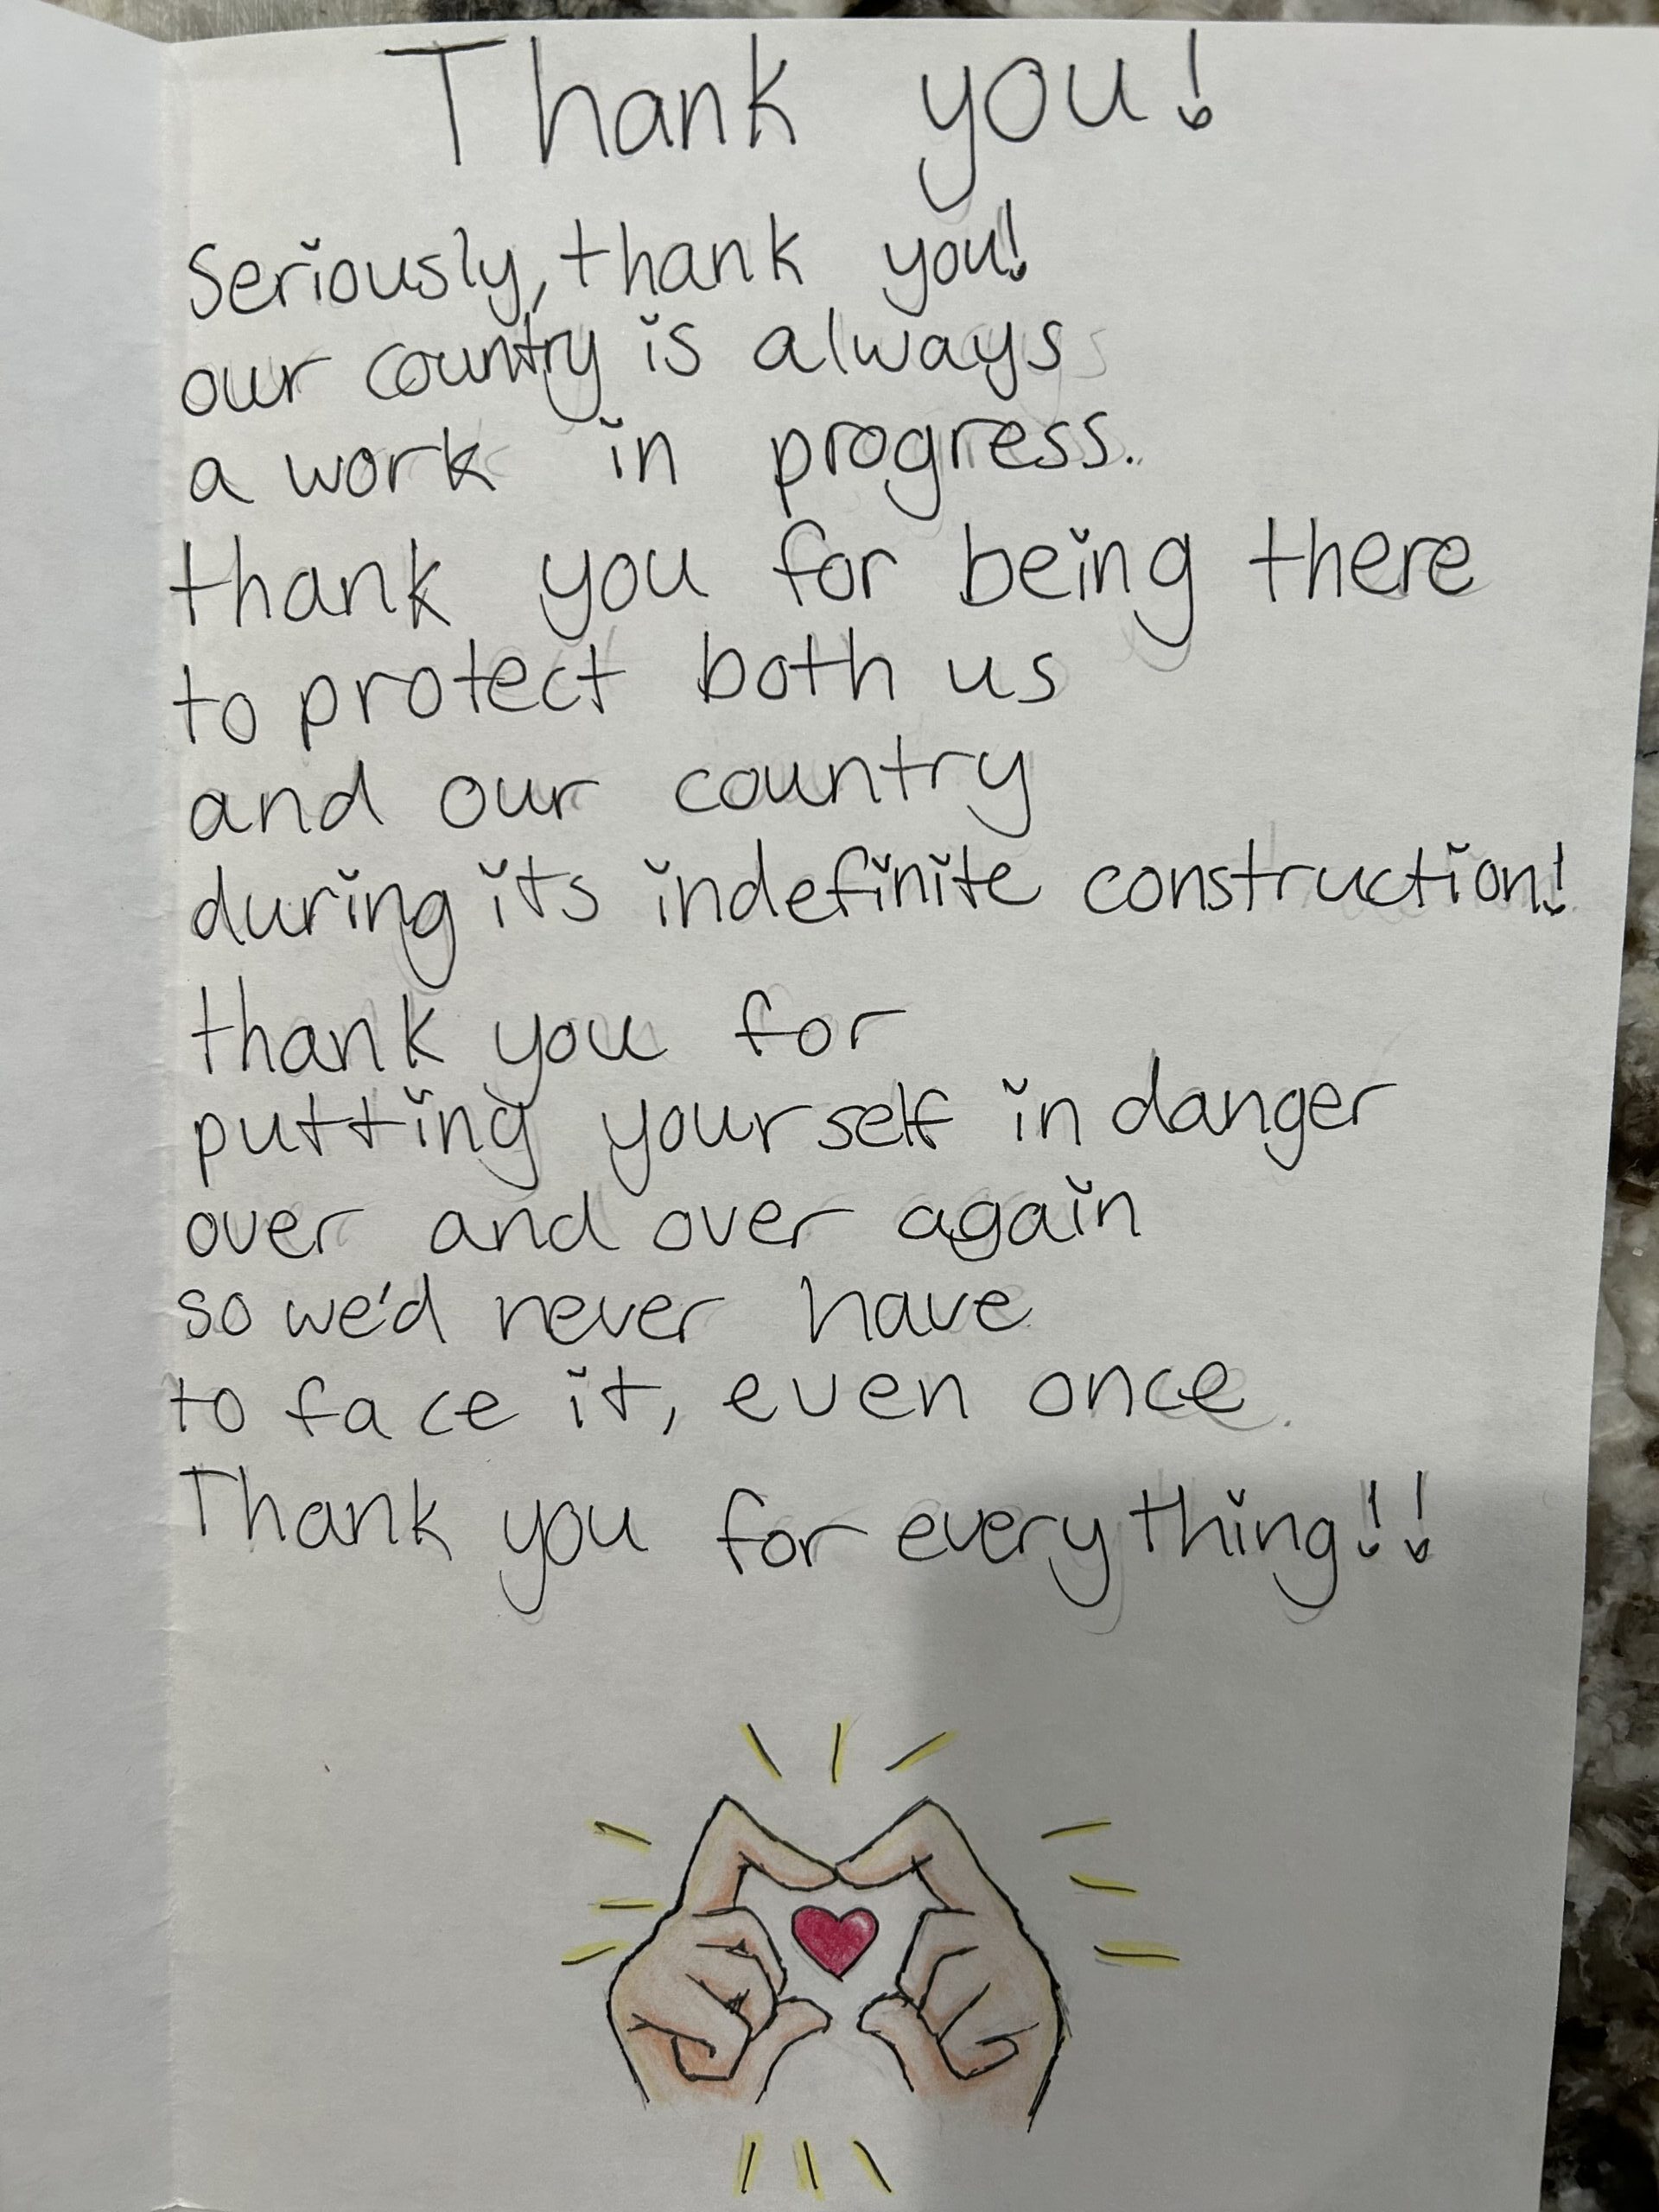 Thank you!
Seriously, thank you!
our country is always
a work in progress.
thank you for being there
to protect both us
and our country
during its indefinite construction!
thank you for
putting yourself in danger
over and over again
so we'd never have
to face it, even once.
Thank you for everything!!